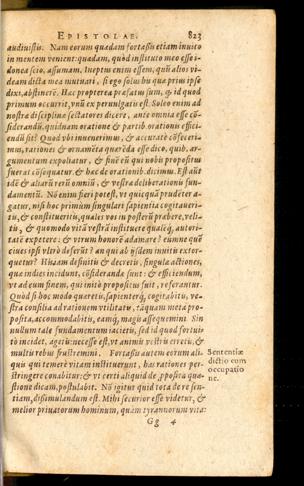 EPISTOLAE. 823
audiuistis. Nam eorum quædam fortassis etiam inuito
in mentem venient: quædam, quòd instituto meo eße i-
donea scio, assumam. Ineptus enim essem, qui alios vi-
leam dicta mea mutuari, si ego solus bis quæ prius ipse
dixi, abstinerē. Hæc propterea præfatus sum, q; id quod
primum occurrit, vnū ex peruulgatis est. Soleo enim ad
nostra disciplinæ sectatores dicere, ante omnia esse cō-
siderandū, quidnam oratione & partib. orationis effici-
endū sit? Quod vbi inuenerimus, & accuratè cōstiterī-
mus, rationes & ornamēta quærēda esse dico, quib. ar-
gumentum expoliatur, & finē eū qui nobis propositus
fuerat cōsequatur. & hæc de orationib. dicimus. Est aūt
idē & aliarū rerū omniū, & vestræ deliberationis fun-
damentū. Nō enim fieri potest, vt quicquā prudēter a-
gatur, nisi hoc primùm singulari sapientia cogitaueri-
tis, & constitueritis, quales vos in posterū præbere, veli-
tis, & quomodo vitā vestrā instituere
tatē expetere: & virum honorē adamare? eumne qui
eius ipsi vlerò deferūt? an qui ab ijsdem inuitis extor-
quetur? His iam definitis & decretis, singulæ actiones,
quæ indies incidunt, cōsiderandæ sunt: & efficiendum,
vt ad eum finem, qui initò propositus fuit, referantur.
Quòd si hoc modo quæretis, sapienterq́, cogitabitis, ve-
stra consilia ad rationem vtilitatis, tāquam meta pro-
posita, accommodabitis, eamq́, magis assequemini. Sin
nullum tale fundamentum iacietis, sed id quod fortui-
tò incidet, agetis: necesse est, vt animis vestris erretis, &
multis rebus frustremini. Fortaßis autem eorum ali- Sententiæ
quis qui temerè vitam instituerunt, has rationes per- dictio cum
stringere conabitur: & vt certi aliquid de proposita quæ- occupatio
stione dicam, postulabit. Nō igitur quid tota de re sen- ne.
tiam, dissimulandum est. Mihi securior esse videtur, &
melior priuatorum hominum, quàm tyrannorum vita:
Gg 4